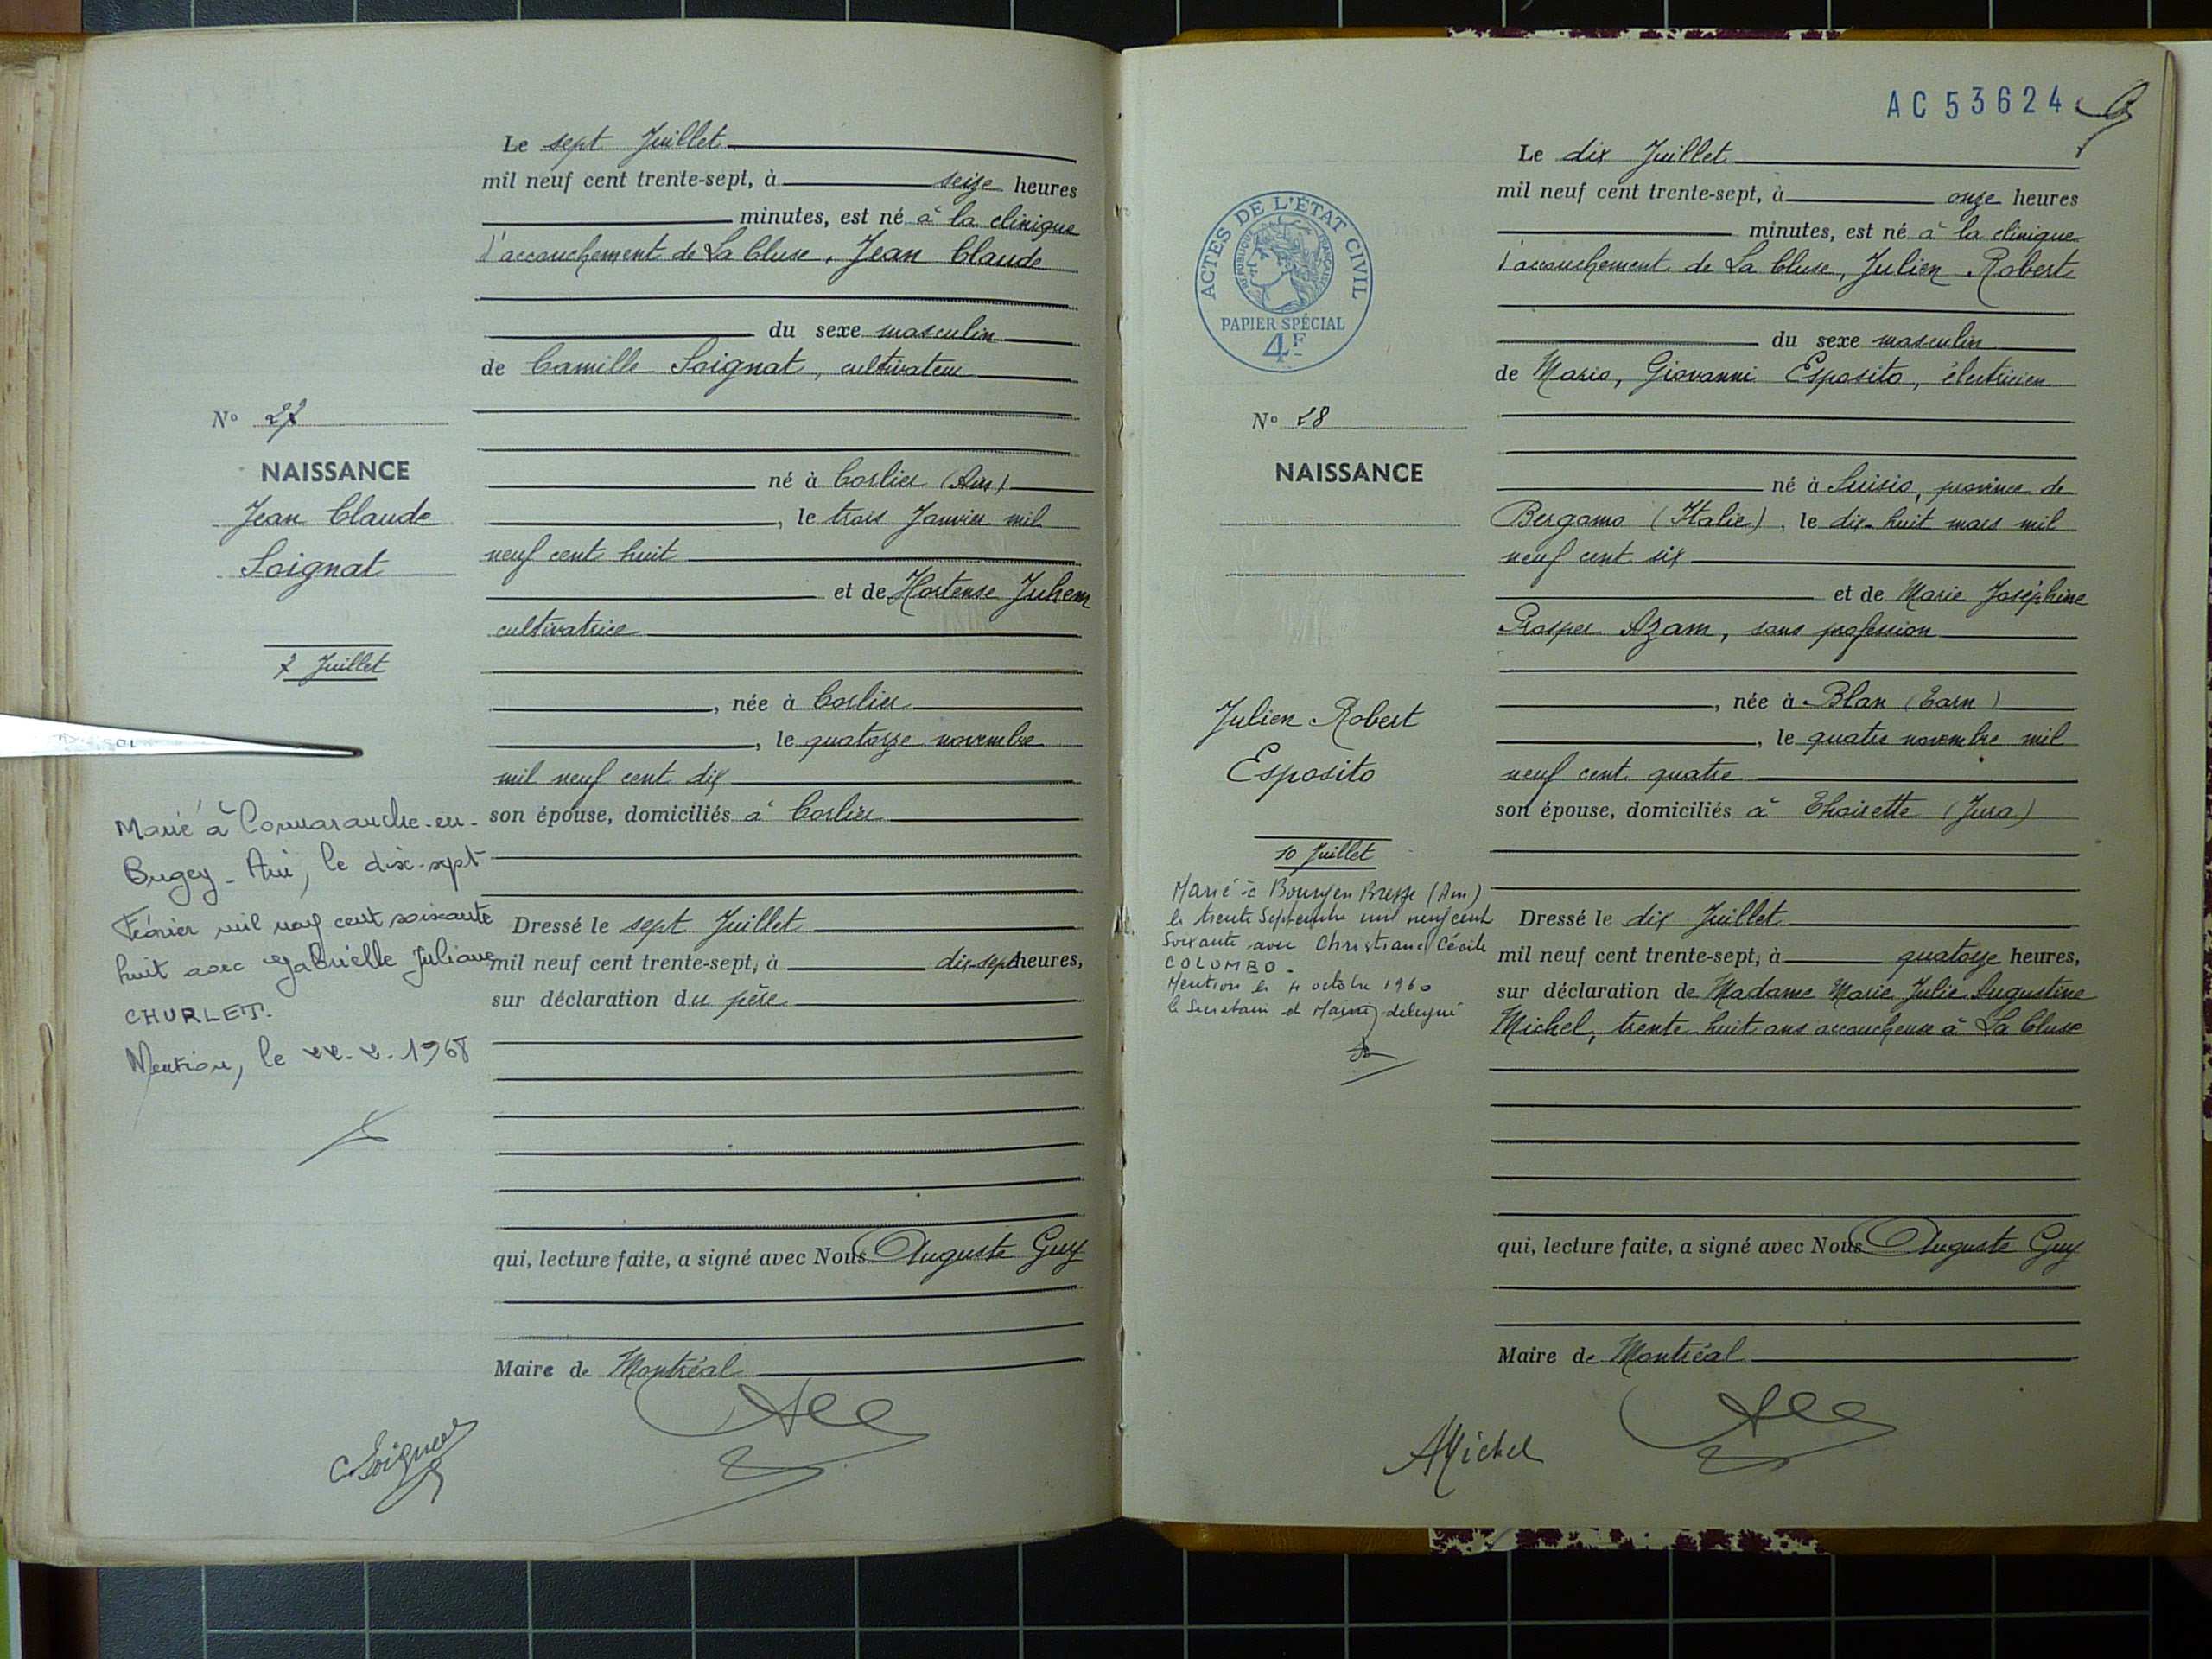 Le sept Juillet
mil neuf cent trente-sept, à seize heures
minutes, est né à la clinique
d'accouchement de La Cluse, Jean Claude
du sexe masculin
de Camille Soignat, cultivateur
N° 27
NAISSANCE
Jean Claude
Soignat
7 Juillet
né à Corlier (Ain)
, le trois Janvier mil
neuf cent huit
et de Hortense Juhem
cultivatrice
, née à Corlier
, le quatorze novembre
mil neuf cent dix
son épouse, domiciliés à Corlier
Marié à Cormaranche-en-
Bugey - Ain, le dix-sept
Février mil neuf cent soixante
huit avec Gabrielle Juliane
CHURLET.
Mention, le 1968
Dressé le sept Juillet
mil neuf cent trente-sept, à dix-sept heures,
sur déclaration du père
qui, lecture faite, a signé avec Nous Auguste Guy
Maire de Montréal
AC 53624
Le dix Juillet
mil neuf cent trente-sept, à onze heures
minutes, est né à la clinique
d'accouchement de La Cluse, Julien Robert
du sexe masculin
de Mario, Giovanni Esposito, électricien
ACTES DE L'ÉTAT CIVIL
RÉPUBLIQUE FRANÇAISE
PAPIER SPÉCIAL
4F
N° 28
NAISSANCE
Julien Robert
Esposito
10 Juillet
né à Suisio, province de
Bergamo (Italie), le dix-huit mars mil
neuf cent six
et de Marie Joséphine
Prosper Azam, sans profession
, née à Blan (Tarn)
, le quatre novembre mil
neuf cent quatre
son épouse, domiciliés à Thoirette (Jura)
Marié à Bourg en Bresse (Ain)
le trente Septembre mil neuf cent
Soixante avec Christiane Cécile
COLOMBO -
Mention le 4 octobre 1960
le Secrétaire de Mairie délégué
Dressé le dix Juillet
mil neuf cent trente-sept, à quatorze heures,
sur déclaration de Madame Marie Julie Augustine
Michel, trente-huit ans accoucheuse à La Cluse
qui, lecture faite, a signé avec Nous Auguste Guy
Maire de Montréal
AMichel